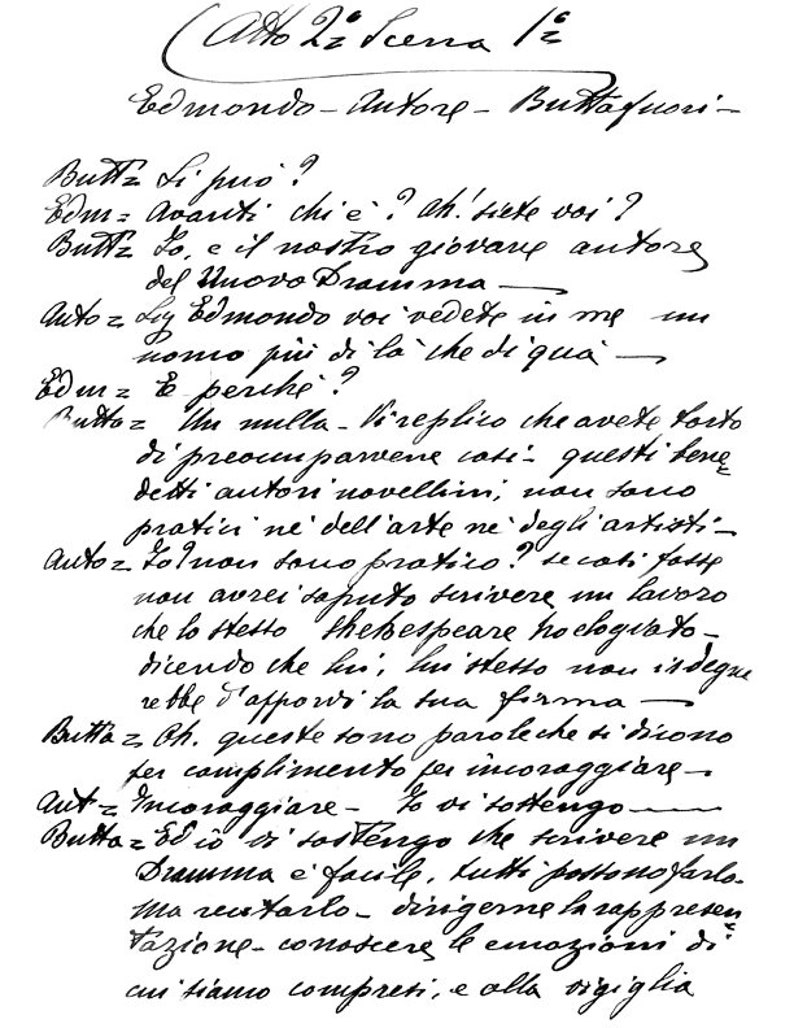 Atto 2º Scena 1ª
Edmondo - Autore - Buttafuori -
Butt= Si può?
Edm= Avanti chi è? Ah! siete voi?
Butt= Io, e il nostro giovane autore
del Nuovo Dramma —
Auto= Sig Edmondo voi vedete in me un
uomo più di là che di quà —
Edm= E perchè?
Butta= Un nulla - Vi replico che avete torto
di preocuparvene così - questi bene=
detti autori novellini, non sono
pratici nè dell'arte nè degli artisti -
Auto= Io? non sono pratico? se così fosse
non avrei saputo scrivere un lavoro
che lo stesso Shekespeare ha elogiato -
dicendo che lui, lui stesso non isdegne
rebbe d'apporvi la sua firma —
Butta= Oh. queste sono parole che si dicono
per complimento per incoraggiare -
Aut= Incoraggiare - Io vi sostengo ——
Butta= Ed io vi sostengo che scrivere un
Dramma è facile, tutti possono farlo.
Ma recitarlo - dirigerne la rappresen=
tazione - conoscere le emozioni di
cui siamo compresi, e alla vigiglia